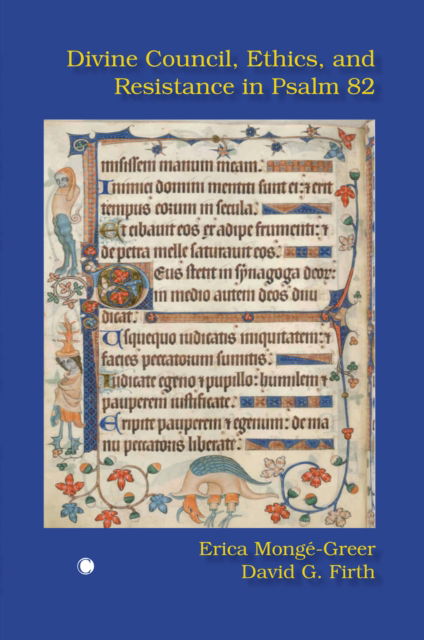 Divine Council, Ethics, and
Resistance in Psalm 82
misissem manum meam.
Inimici domini mentiti sunt ei: ⁊ erit
tempus eorum in secula.
Et cibauit eos ex adipe frumenti: ⁊
de petra melle saturauit eos.
Deus stetit in synagoga deor:
in medio autem deos diiu
dicat.
Usquequo iudicatis iniquitatem: ⁊
facies peccatorum sumitis.
Iudicate egeno ⁊ pupillo: humilem ⁊
pauperem iustificate.
Eripite pauperem ⁊ egenum: de ma
nu peccatoris liberate.
Erica Mongé-Greer
David G. Firth